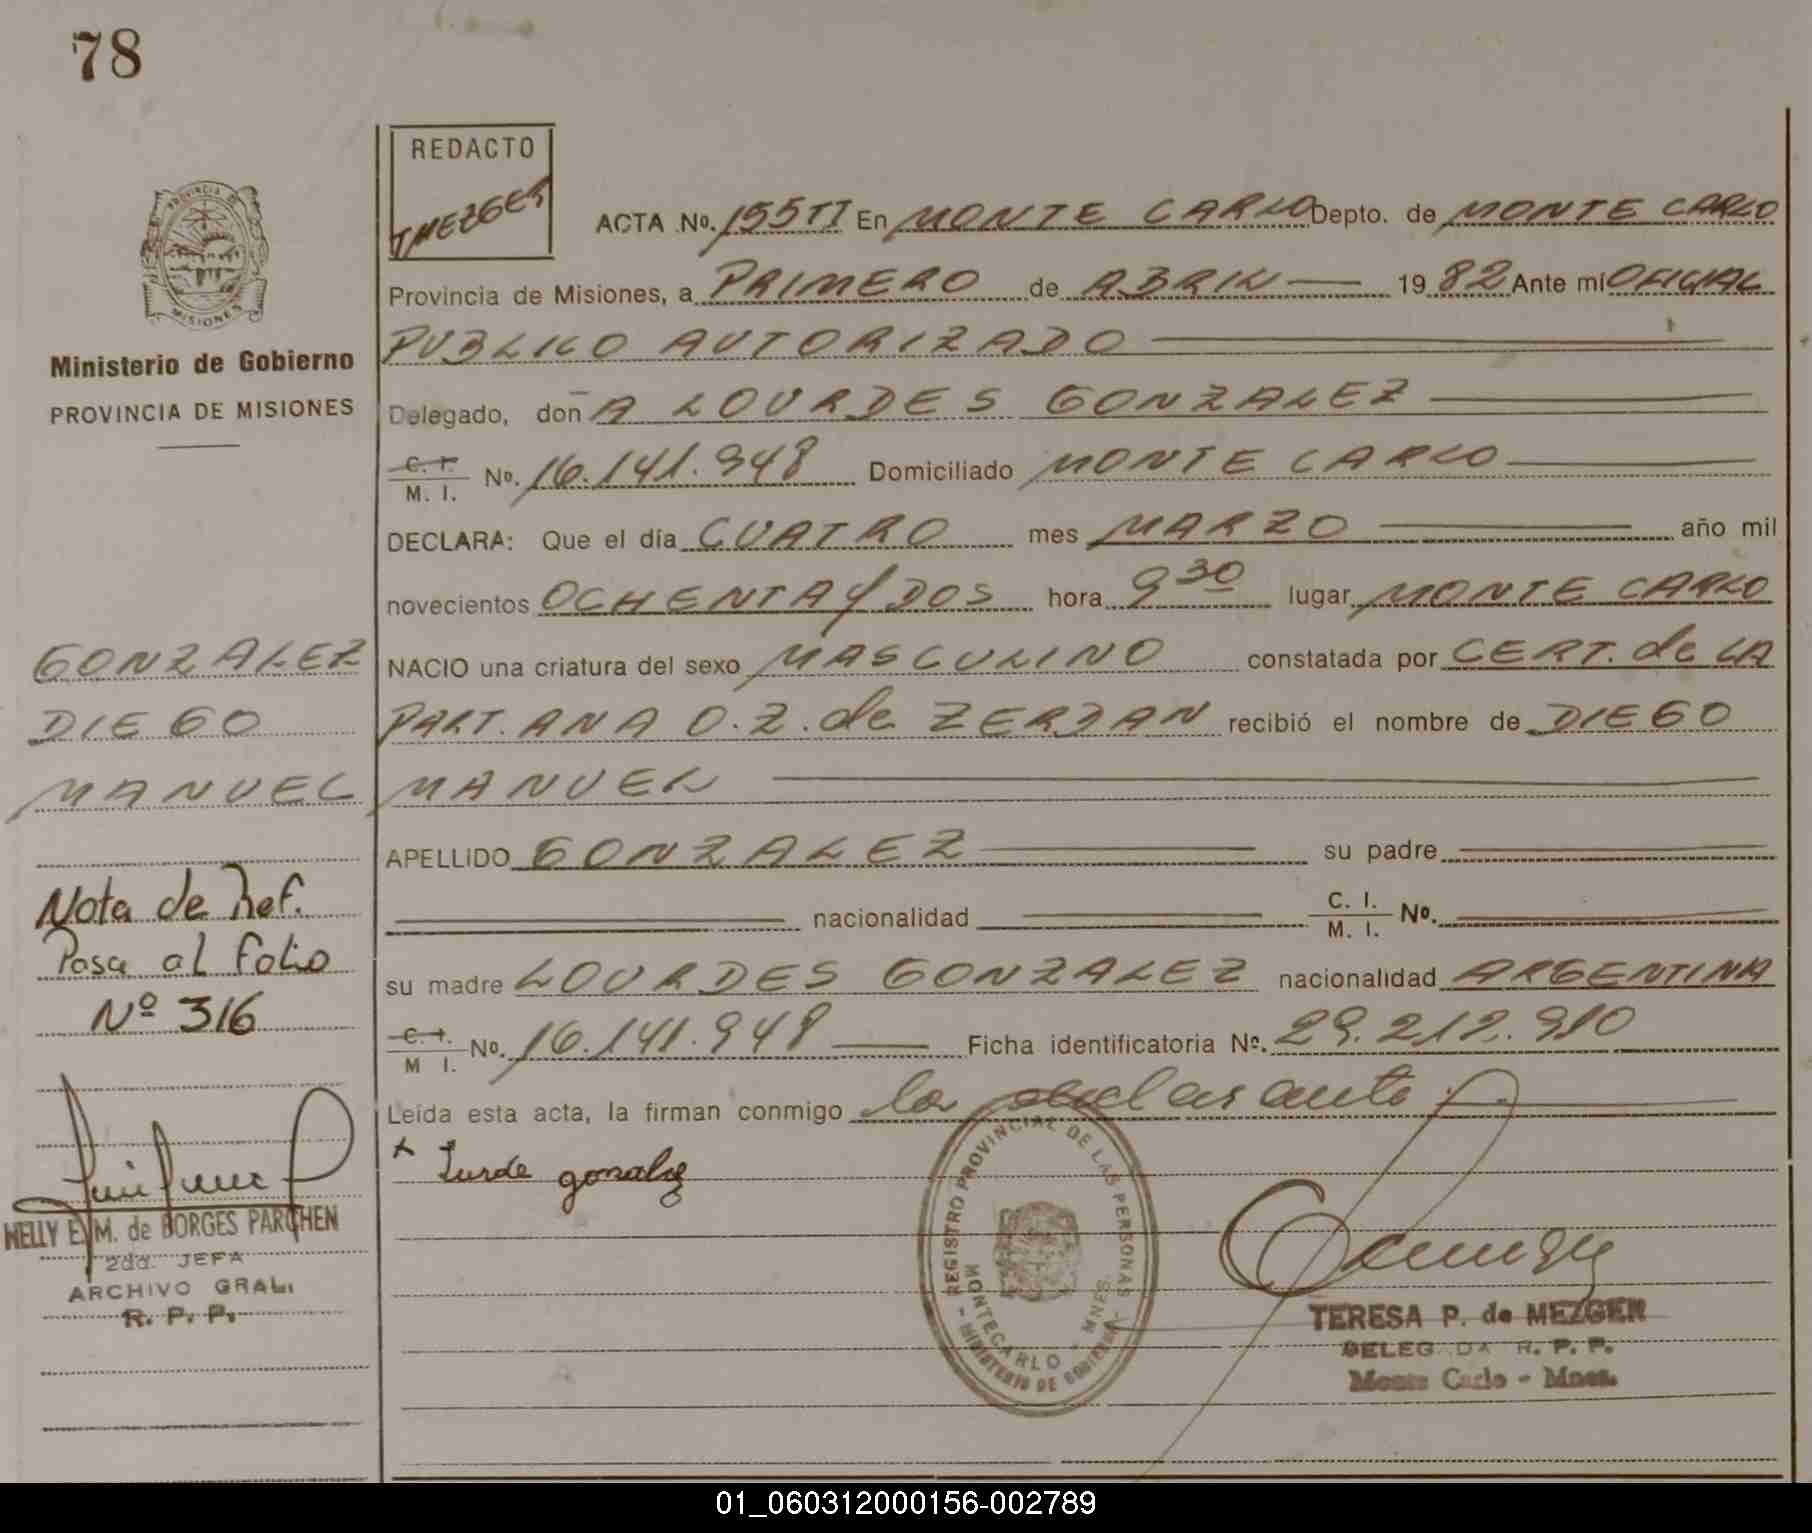 78
PROVINCIA DE
MISIONES
Ministerio de Gobierno
PROVINCIA DE MISIONES
REDACTO
TMEZGER
ACTA Nº. 155TI En MONTE CARLO Depto. de MONTE CARLO
Provincia de Misiones, a PRIMERO de ABRIL 19 82 Ante mí OFICIAL
PUBLICO AUTORIZADO
Delegado, don A LOURDES GONZALEZ
C. I.
M. I. Nº. 16.141.948 Domiciliado MONTE CARLO
DECLARA: Que el día CUATRO mes MARZO año mil
novecientos OCHENTA Y DOS hora 9 30 lugar MONTE CARLO
NACIO una criatura del sexo MASCULINO constatada por CERT. de LA
PART. ANA O. Z. de ZERDAN recibió el nombre de DIEGO
MANUEL
APELLIDO GONZALEZ su padre
nacionalidad C. I.
M. I. Nº.
su madre LOURDES GONZALEZ nacionalidad ARGENTINA
C. I.
M I. Nº. 16.141.948 Ficha identificatoria Nº. 29.212.910
Leída esta acta, la firman conmigo la declarante
x Lurde gonzalez
REGISTRO PROVINCIAL DE LAS PERSONAS
MONTECARLO - MNES.
- MINISTERIO DE GOBIERNO -
TERESA P. de MEZGER
DELEGADA R. P. P.
Monte Carlo - Mnes.
GONZALEZ
DIEGO
MANUEL
Nota de Ref.
Pasa al Folio
Nº 316
NELLY E. M. de BORGES PARCHEN
2da. JEFA
ARCHIVO GRAL.
R. P. P.
01_060312000156-002789